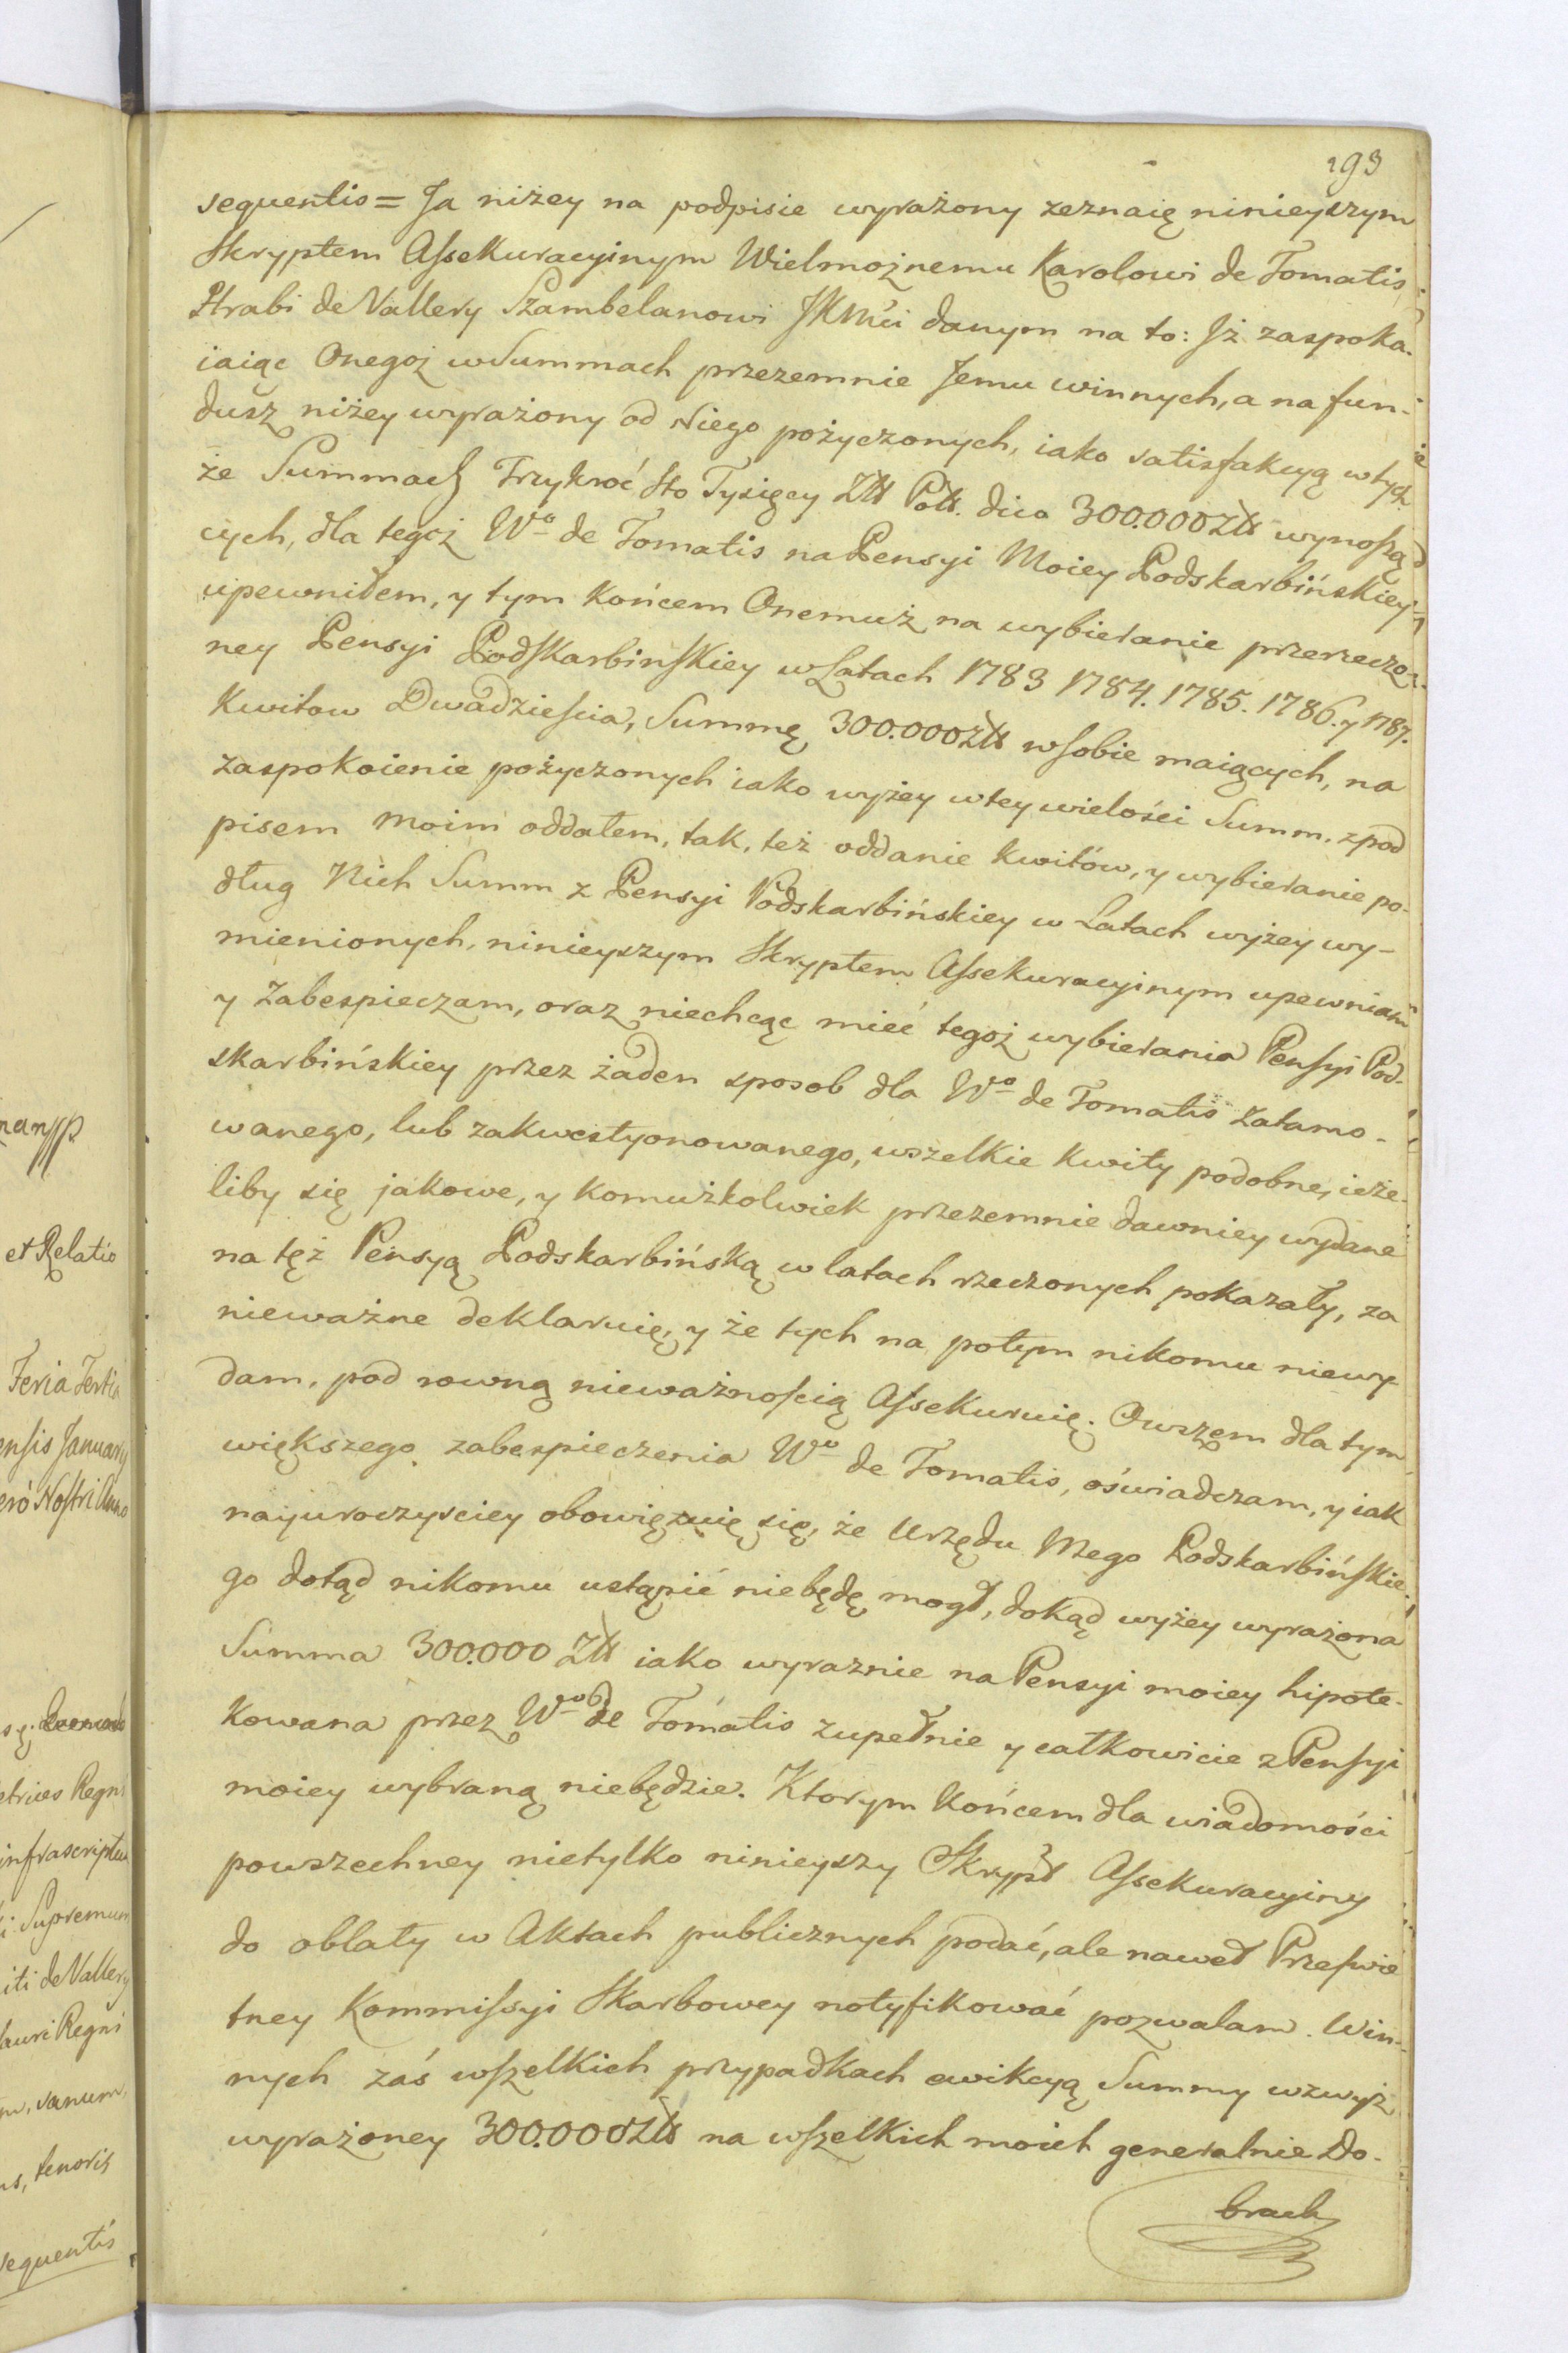 193
sequentis = Ja niżey na podpisie wyrażony zeznaię ninieyszym
Skryptem Assekuracyinym Wielmożnemu Karolowi de Tomatis
Hrabi de Vallery Szambelanowi JKMći danym na to: Jż zaspoka-
iaiąc Onegoż w Summach przezemnie Jemu winnych, a na fun-
dusz niżey wyrażony od Niego pożyczonych, iako satisfakcyą w tych
że Summach Trzykroć sto Tysięcy Złł Polł. dico 300.000 Złł wynoszą-
cych, dla tegoż Wo de Tomatis na Pensyi Moiey Podskarbińskiey
upewniłem, y tym Końcem Onemuż na wybieranie przerzeczo-
ney Pensyi Podskarbinskiey w Latach 1783 1784. 1785. 1786. y 1787.
Kwitow Dwadziescia, Summę 300.000 Złł w sobie maiących, na
zaspokoienie pożyczonych iako wyżey w tey wielości Summ, z pod
pisem moim oddałem, tak, też oddanie Kwitów, y wybieranie po-
dług Nich Summ z Pensyi Podskarbińskiey w Latach wyżey wy-
mienionych, ninieyszym Skryptem Assekuracyinym upewniam
y Zabespieczam, oraz niechcąc mieć tegoż wybierania Pensyi Pod-
skarbińskiey przez żaden sposob dla Wo de Tomatis zatamo-
wanego, lub zakwestyonowanego, wszelkie Kwity podobne, ieże-
liby się jakowe, y Komużkolwiek przezemnie dawniey wydane
na tęż Pensyą Podskarbińską w latach rzeczonych pokazały, za
nieważne deklaruię, y że tych na potym nikomu niewy-
dam, pod rowną nieważnoscią Assekuruię. Owszem dla tym
większego zabespieczenia Wo de Tomatis, oświadczam, y iak
nayuroczysciey obowięzuię się, że Urzędu Mego Podskarbińskie-
go dotąd nikomu ustąpić niebędę mogł, dokąd wyżey wyrażona
Summa 300.000 Złł iako wyraznie na Pensyi moiey hipote-
kowana przez Wo de Tomatis zupełnie y całkowicie z Pensyi
moiey wybraną niebędzie. Ktorym Końcem dla wiadomości
powszechney nietylko ninieyszy Skrypt Assekuracyiny
do oblaty w Aktach publicznych podać, ale nawet Przeswie
tney Kommissyi Skarbowey notyfikować pozwalam. W in-
nych zaś wszelkich przypadkach ewikcyą Summy wzwyż
wyrażoney 300.000 Złł na wszelkich moich generalnie Do-
brach
et Relatio
Feria Tertia
ensis January
infrascriptum
Supremum
iti de Vallery
auri Regni
sanum
tenoris
sequentis